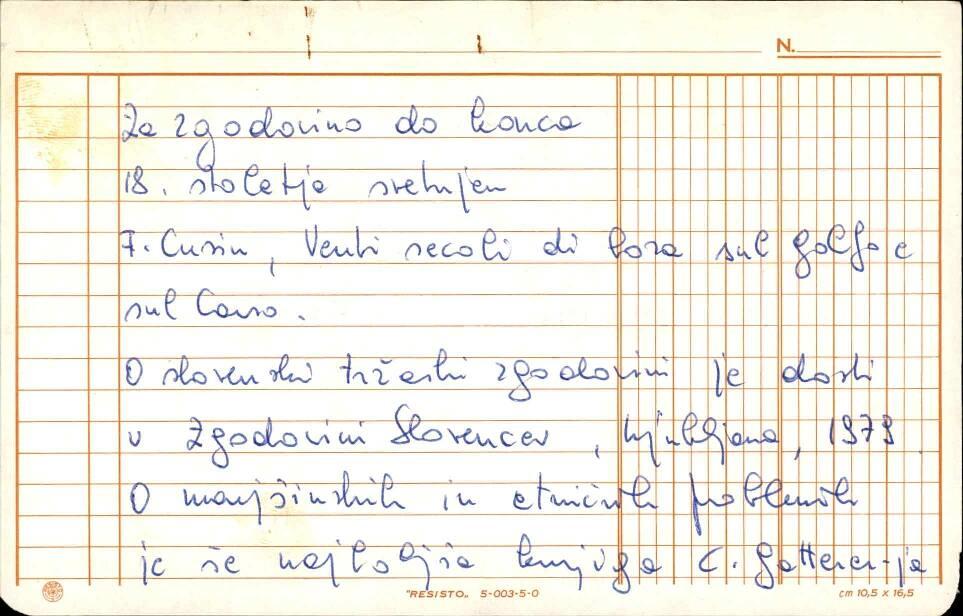 N.
Za zgodovino do konca
18. stoletja svetujem
F. Cusin, Venti secoli di bora sul golfo e
sul Carso.
O slovenski tržaški zgodovini je dosti
v Zgodovini Slovencev, Ljubljana, 1979.
O manjšinskih in etničnih problemih
je še najboljša knjiga C. Gatterer-ja
"RESISTO„ 5-003-5-0
cm 10,5 x 16,5